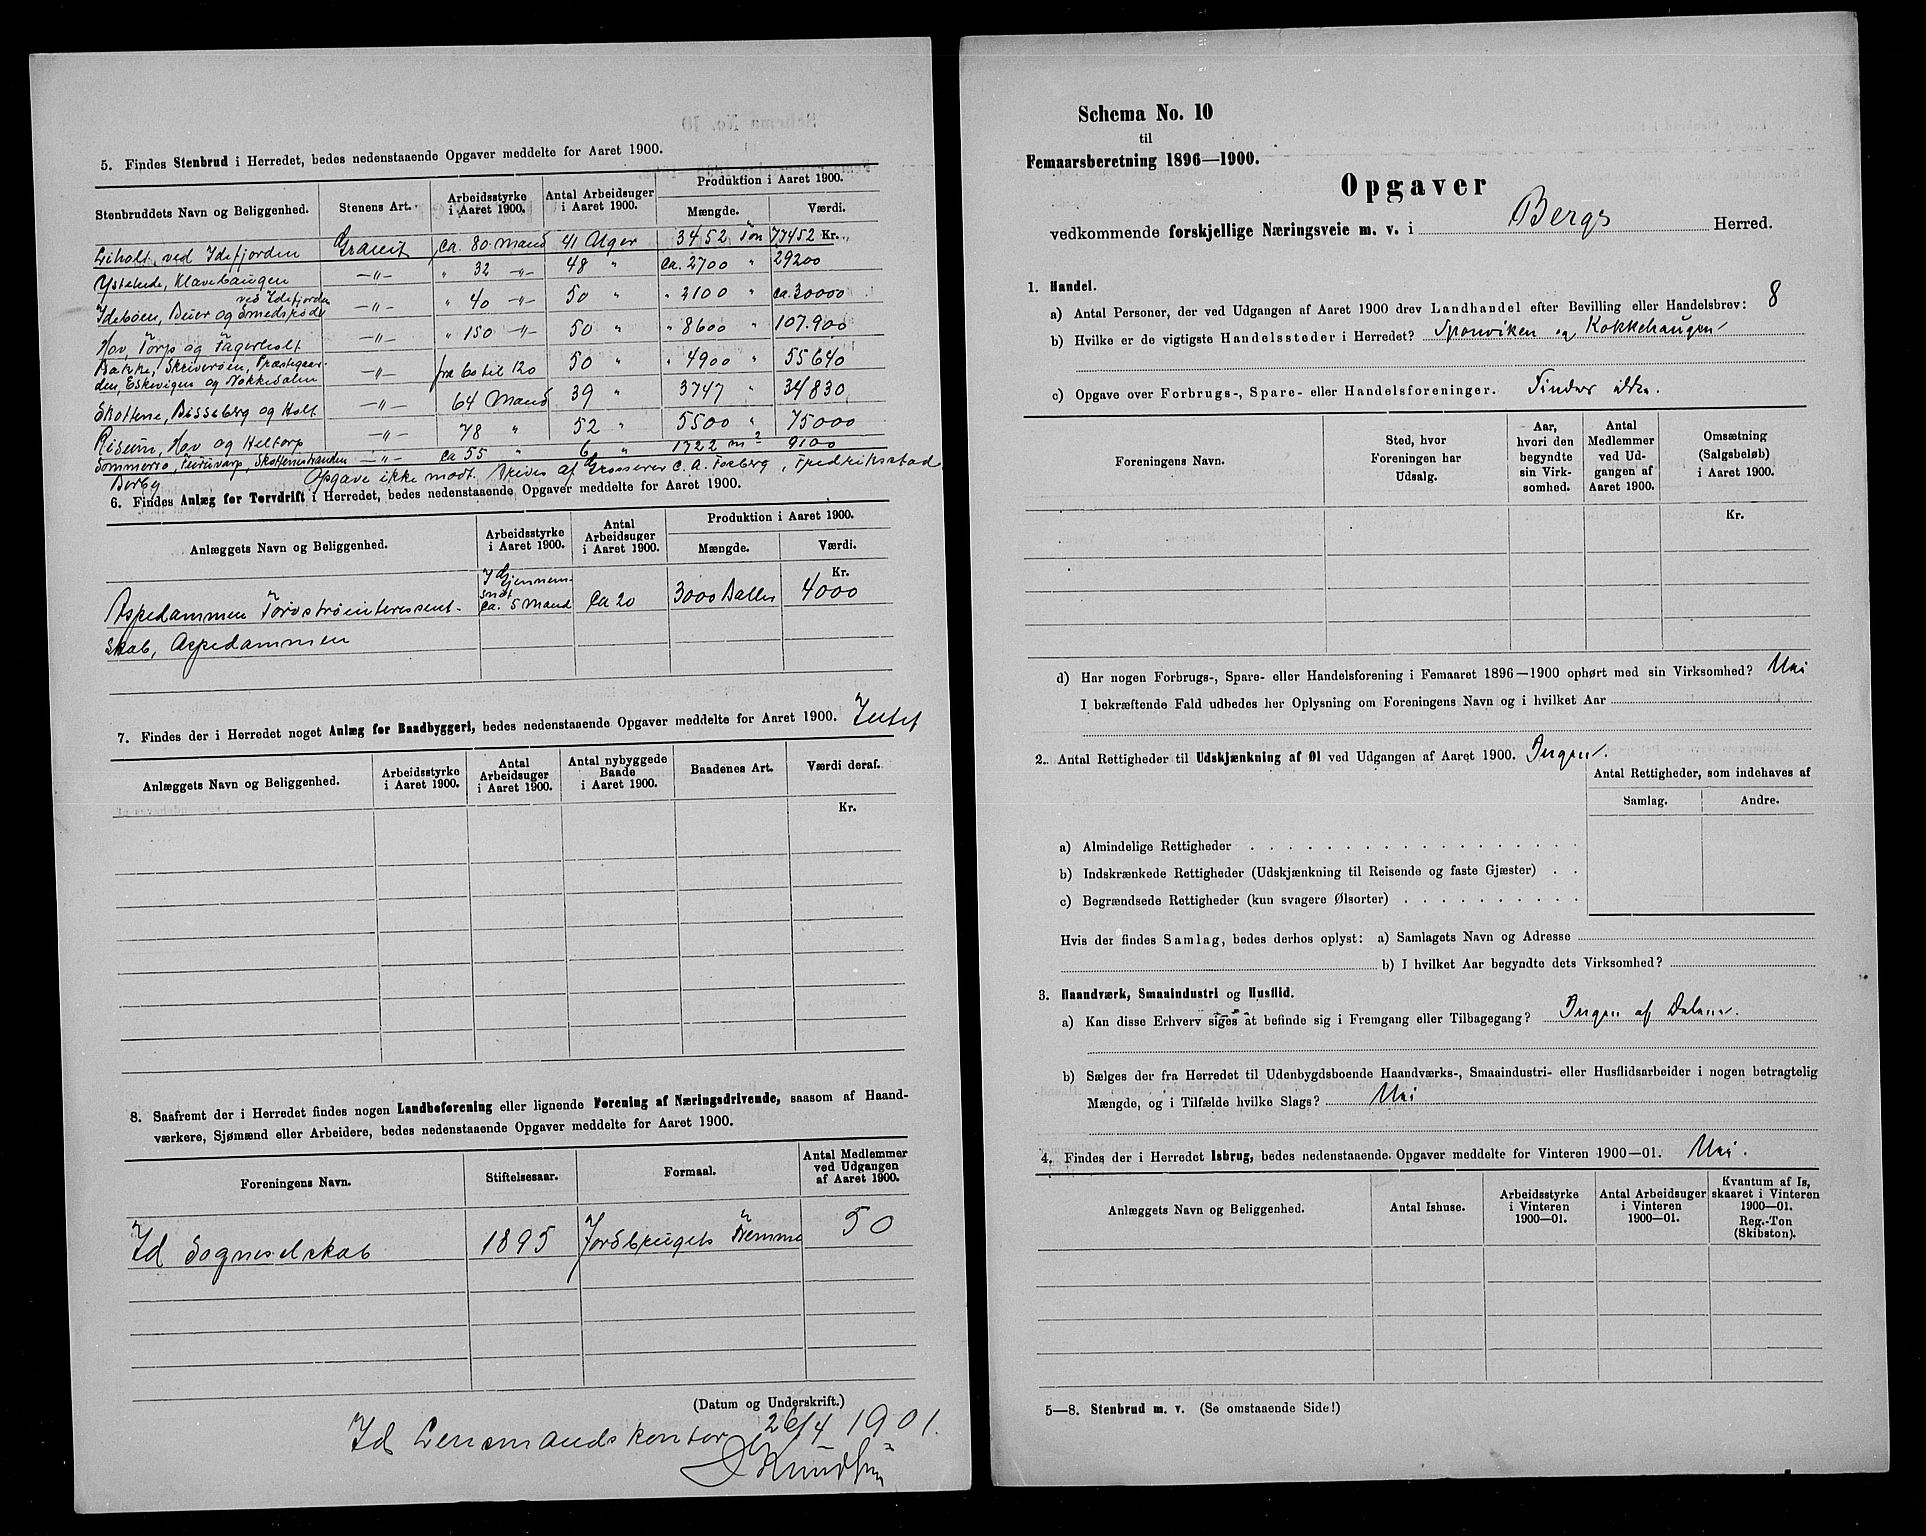 5. Findes Stenbrud i Herredet, bedes nedenstaaende Opgaver meddelte for Aaret 1900.
Stenbruddets Navn og Beliggenhed. Stenens Art. Arbeidsstyrke i Aaret 1900. Antal Arbeidsuger i Aaret 1900. Produktion i Aaret 1900. Mængde. Værdi.
Liholt, ved Idefjorden Granit ca. 80 Mand 41 Uger 3452 Ton 77452 Kr.
Ystehede, Klavehaugen —„— „ 32 —„— 48 „ ca. 2700 „ 29200
ved Idefjorden
Ideböen, Buer og —„— „ 40 —„— 50 „ „ 2100 „ ca 30000
Hov, Torp og Fagerholt —„— „ 150 —„— 50 „ „ 8600 „ 107.900
Bakke, Skriveröen, Præstegaar-
den, Eskevigen og Nokkedalen —„— fra 60 til 120 50 „ „ 4900 „ 55640
Skottene, Bisseberg og Holt —„— 64 Mand 39 „ 3747 „ 34830
Risum, Hov og Heltorp —„— 78 „ 52 „ 5500 „ 75000
Skottenestranden —„— ca 55 „ 6 „ 1722 m² 9100
Berby Opgave ikke modt. Drives af Grosserer C. A. Forberg, Fredriksstad
6. Findes Anlæg for Torvdrift i Herredet, bedes nedenstaaende Opgaver meddelte for Aaret 1900.
Anlæggets Navn og Beliggenhed. Arbeidsstyrke i Aaret 1900. Antal Arbeidsuger i Aaret 1900. Produktion i Aaret 1900. Mængde. Værdi.
Kr.
Aspedammen Torvströinteressent- I Gjennem-snit ca. 5 Mand ca 20 3000 Baller 4000
skab, Aspedammen
7. Findes der i Herredet noget Anlæg for Baadbyggeri, bedes nedenstaaende Opgaver meddelte for Aaret 1900. Intet
Anlæggets Navn og Beliggenhed. Arbeidsstyrke i Aaret 1900. Antal Arbeidsuger i Aaret 1900. Antal nybyggede Baade i Aaret 1900. Baadenes Art. Værdi deraf.
Kr.
8. Saafremt der i Herredet findes nogen Landboforening eller lignende Forening af Næringsdrivende, saasom af Haand-
værkere, Sjømænd eller Arbeidere, bedes nedenstaaende Opgaver meddelte for Aaret 1900.
Foreningens Navn. Stiftelsesaar. Formaal. Antal Medlemmer ved Udgangen af Aaret 1900.
Id Sogneselskab 1895 Jordbrugets Fremme 50
(Datum og Underskrift.)
Id Lensmandskontor 26/4 1901.
Knudsen
Schema No. 10
til
Femaarsberetning 1896—1900.
Opgaver
vedkommende forskjellige Næringsveie m. v. i Bergs Herred.
1. Handel.
a) Antal Personer, der ved Udgangen af Aaret 1900 drev Landhandel efter Bevilling eller Handelsbrev: 8
b) Hvilke er de vigtigste Handelssteder i Herredet? Sponviken og Kokkehaugen
c) Opgave over Forbrugs-, Spare- eller Handelsforeninger. Findes ikke.
Foreningens Navn. Sted, hvor Foreningen har Udsalg. Aar, hvori den begyndte sin Virksomhed. Antal Medlemmer ved Udgangen af Aaret 1900. Omsætning (Salgsbeløb) i Aaret 1900.
Kr.
d) Har nogen Forbrugs-, Spare- eller Handelsforening i Femaaret 1896—1900 ophørt med sin Virksomhed? Nei
I bekræftende Fald udbedes her Oplysning om Foreningens Navn og i hvilket Aar
2. Antal Rettigheder til Udskjænkning af Øl ved Udgangen af Aaret 1900. Ingen.
Antal Rettigheder, som indehaves af
Samlag. Andre.
a) Almindelige Rettigheder
b) Indskrænkede Rettigheder (Udskjænkning til Reisende og faste Gjæster)
c) Begrændsede Rettigheder (kun svagere Ølsorter)
Hvis der findes Samlag, bedes derhos oplyst: a) Samlagets Navn og Adresse
b) I hvilket Aar begyndte dets Virksomhed?
3. Haandværk, Smaaindustri og Husflid.
a) Kan disse Erhverv siges at befinde sig i Fremgang eller Tilbagegang? Ingen af Delene.
b) Sælges der fra Herredet til Udenbygdsboende Haandværks-, Smaaindustri- eller Husflidsarbeider i nogen betragtelig
Mængde, og i Tilfælde hvilke Slags? Nei
4. Findes der i Herredet Isbrug, bedes nedenstaaende Opgaver meddelte for Vinteren 1900—01. Nei.
Anlæggets Navn og Beliggenhed. Antal Ishuse. Arbeidsstyrke i Vinteren 1900—01. Antal Arbeidsuger i Vinteren 1900—01. Kvantum af Is, skaaret i Vinteren 1900—01. Reg.-Ton (Skibston).
5—8. Stenbrud m. v. (Se omstaaende Side!)